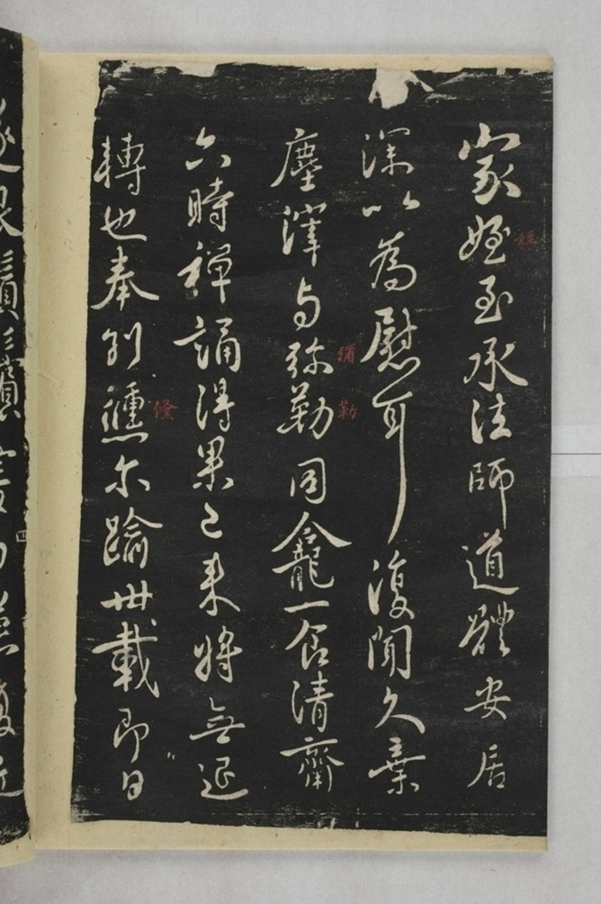 家姪至承法師道體安居
深以為慰耳復聞久棄
塵滓与弥勒同龕一食清齋
六時禪誦得果已來將無退
轉也奉別儵尔踰卅載即日
姪
彌
勒